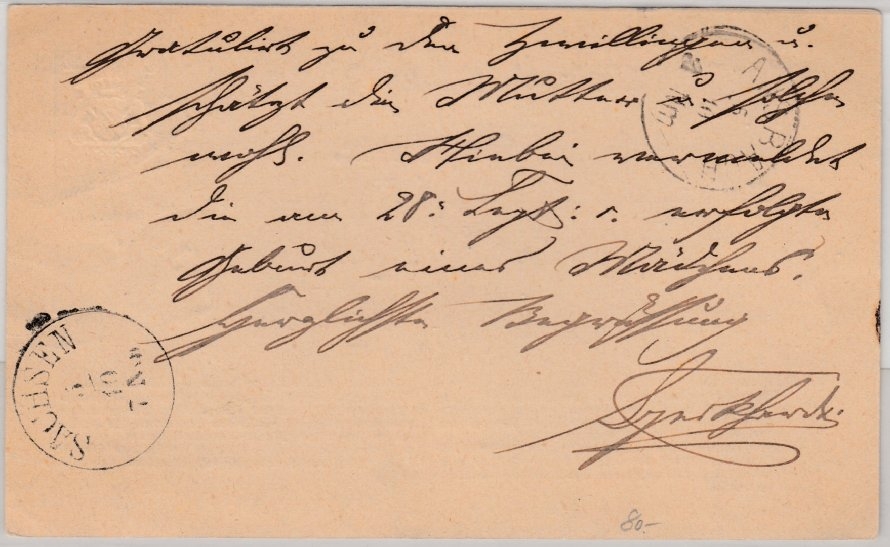 Gratulirt zu den Zwillingen u.
schätzt die Mutter u. solche
wohl. Hiebei vermeldet
die am 28. Sept: erfolgte
Geburt eines Mädchens.
Herzlichste Begrüssung
SACHSEN
80.-